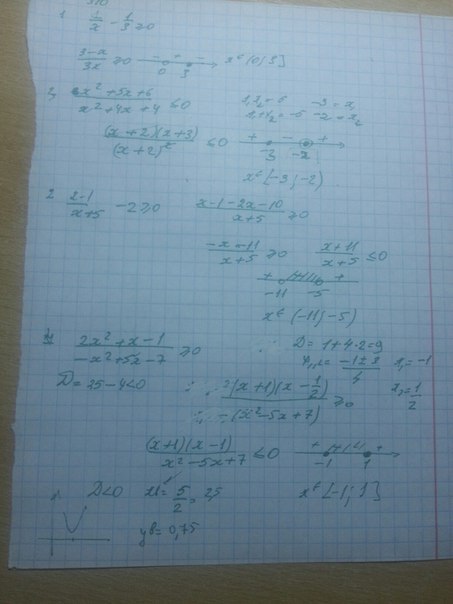 1. 1/x - 1/3 ≥ 0
(3-x)/3x ≥ 0 - + - 0 3 x ∈ (0; 3]
3. (x² + 5x + 6)/(x² + 4x + 4) ≤ 0 -3 = x₁
-2 = x₂
(x+2)(x+3)/(x+2)² ≤ 0 + - + -3 -2
x ∈ [-3; -2)
2 (2-1)/(x+5) - 2 ≥ 0 (x-1-2x-10)/(x+5) ≥ 0
(-x-11)/(x+5) ≥ 0 (x+11)/(x+5) ≤ 0
+ + -11 -5
x ∈ (-11; -5)
(2x² + x - 1)/(-x² + 5x - 7) ≥ 0 D = 1+4·2=9
D = 25-4<0 x₁,₂ = (-1±3)/4 x₁ = -1
(x+1)(x-1/2)/-(x²-5x+7) ≥ 0 x₂ = 1/2
(x+1)(x-1)/(x²-5x+7) ≤ 0 + + -1 1
D<0 xв = 5/2 = 2,5 x ∈ [-1; 1]
yв = 0,75